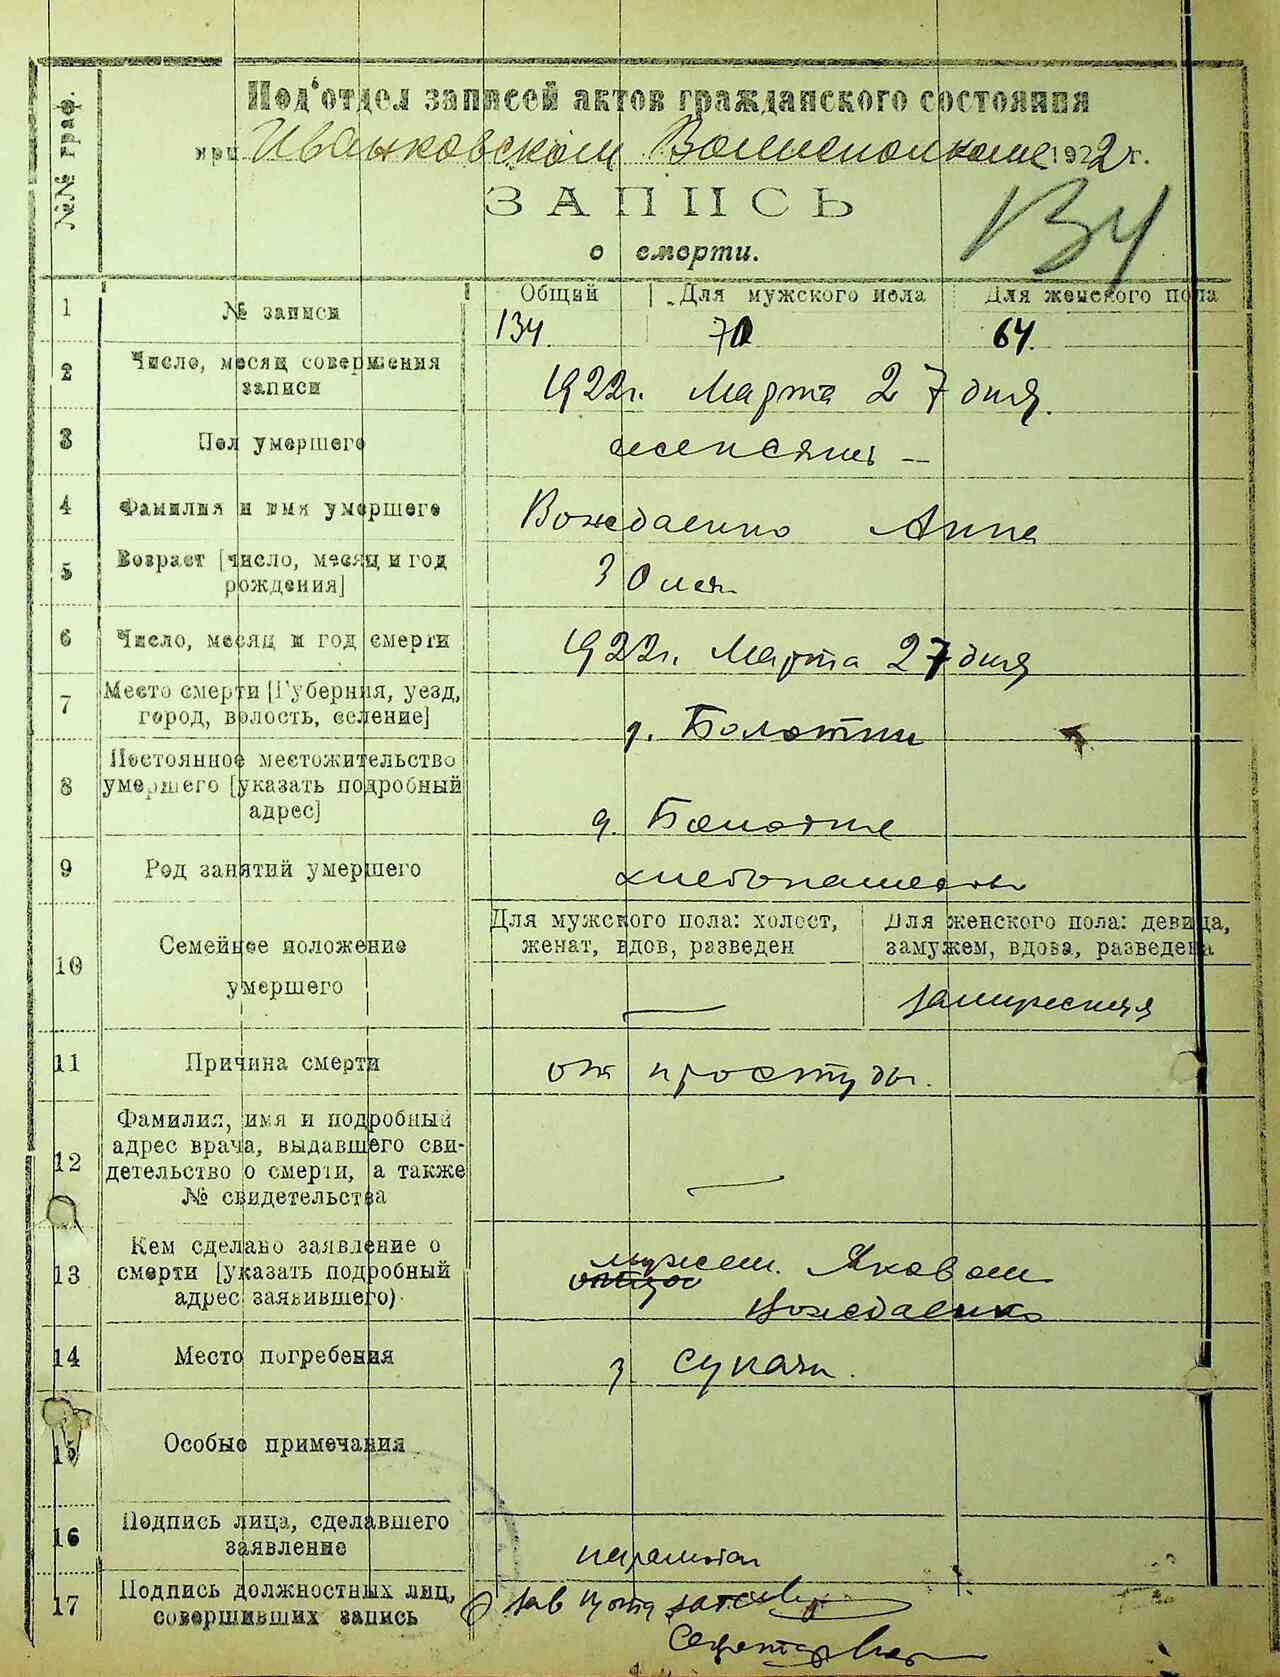 Под'отдел записей актов гражданского состояния
при Иванковском Волисполкоме 1922 г.
ЗАПИСЬ
о смерти.
134
№№ граф.
1 № записи
Общий Для мужского пола Для женского пола
134. 70 64.
2 Число, месяц совершения записи
1922г. Марта 27 дня.
3 Пол умершего
женский —
4 Фамилия и имя умершего
Вождаенко Анна
5 Возраст [число, месяц и год рождения]
30 лет
6 Число, месяц и год смерти
1922г. Марта 27 дня
7 Место смерти [Губерния, уезд, город, волость, селение]
д. Болотни
8 Постоянное местожительство умершего [указать подробный адрес]
д. Болотне
9 Род занятий умершего
хлебопашество
10 Семейное положение умершего
Для мужского пола: холост, женат, вдов, разведен
Для женского пола: девица, замужем, вдова, разведена
— замужняя
11 Причина смерти
от простуды.
12 Фамилия, имя и подробный адрес врача, выдавшего свидетельство о смерти, а также № свидетельства
—
13 Кем сделано заявление о смерти [указать подробный адрес заявившего)
мужем. Яковом
Вождаенко
14 Место погребения
з. Сукачи.
15 Особые примечания
16 Подпись лица, сделавшего заявление
неграмотн
17 Подпись должностных лиц, совершивших запись
Зав
Секретарь